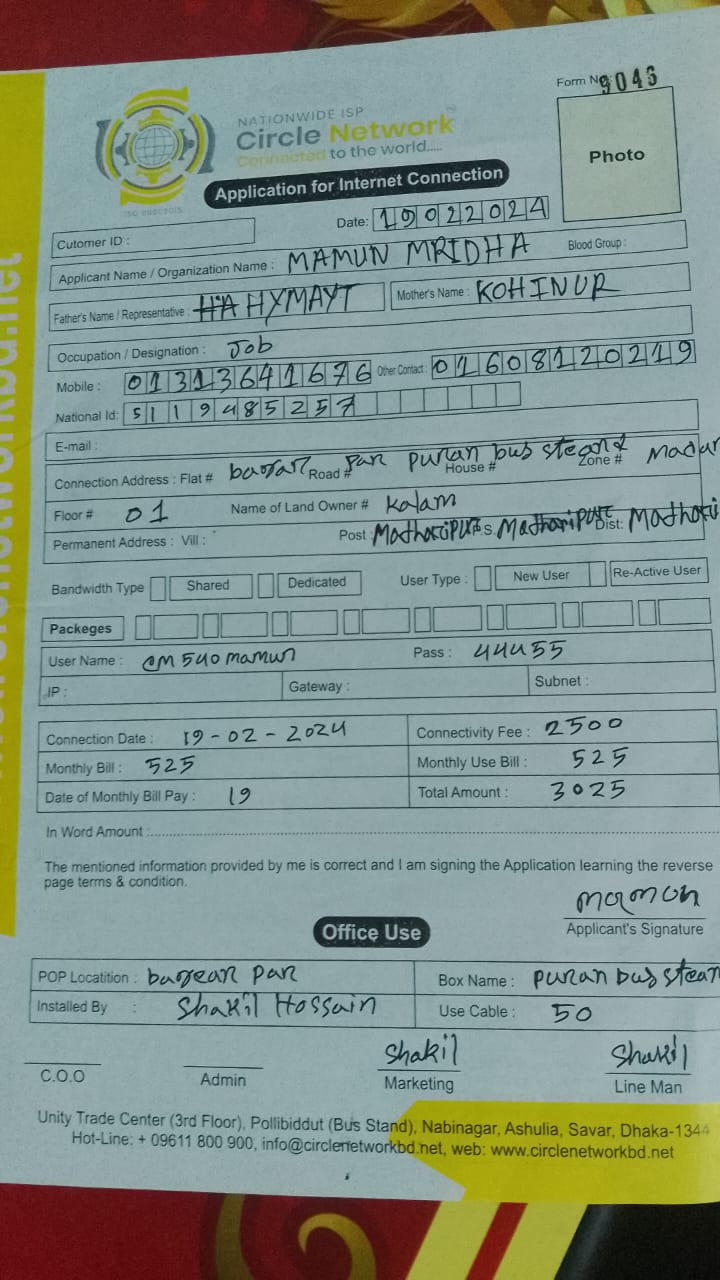 Form No. 9046
NATIONWIDE ISP
Circle Network
Connected to the world.....
Photo
Application for Internet Connection
Date: 19022024
Cutomer ID :
Applicant Name / Organization Name : MAMUN MRIDHA Blood Group :
Father's Name / Representative : HYMAYT Mother's Name : KOHINUR
Occupation / Designation : Job
Mobile : 01313641676 Other Contact : 01608120219
National Id: 5119485257
E-mail :
Connection Address : Flat # Road # Par House # puran bus Zone #
Floor # 01 Name of Land Owner # Kalam
Permanent Address : Vill : Post : P.S. Dist:
Bandwidth Type Shared Dedicated User Type : New User Re-Active User
Packeges
User Name : cm540mamun Pass : 44455
IP : Gateway : Subnet :
Connection Date : 19-02-2024 Connectivity Fee : 2500
Monthly Bill : 525 Monthly Use Bill : 525
Date of Monthly Bill Pay : 19 Total Amount : 3025
In Word Amount :
The mentioned information provided by me is correct and I am signing the Application learning the reverse
page terms & condition.
mamon
Applicant's Signature
Office Use
POP Locatition : par Box Name : puran bus stean
Installed By : Shakil Hossain Use Cable : 50
Shakil Shakil
C.O.O Admin Marketing Line Man
Unity Trade Center (3rd Floor), Pollibiddut (Bus Stand), Nabinagar, Ashulia, Savar, Dhaka-1344
Hot-Line: + 09611 800 900, info@circlenetworkbd.net, web: www.circlenetworkbd.net